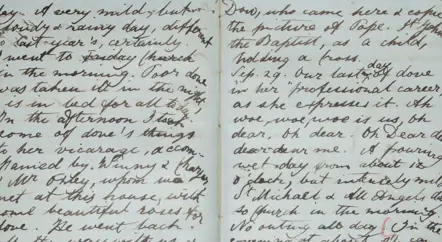 day. A very mild, but
cloudy & rainy day, different
to last year's, certainly.
went to Church
in the morning. Poor dove
was taken ill in the night,
is in bed for all to
In the afternoon I took
some of dove's things
to her vicarage, accom-
panied by Winny &
Mr Oxley, upon
met at this house, with
some beautiful roses for
dove. He went back
Dow, who came here & copied
the picture of Pope. St John
the Baptist, as a child,
holding a Cross.
Sep. 29. Our last day of dove
in her professional career,
as she expresses it. Ah
woe, woe, woe is us, oh
dear, oh dear. Oh Dear de
dear dear me. A pouring
wet day from about 12
o'clock, but intensely mild
St Michael & All Angels day
to Church in the morning
No outing all day. (In the